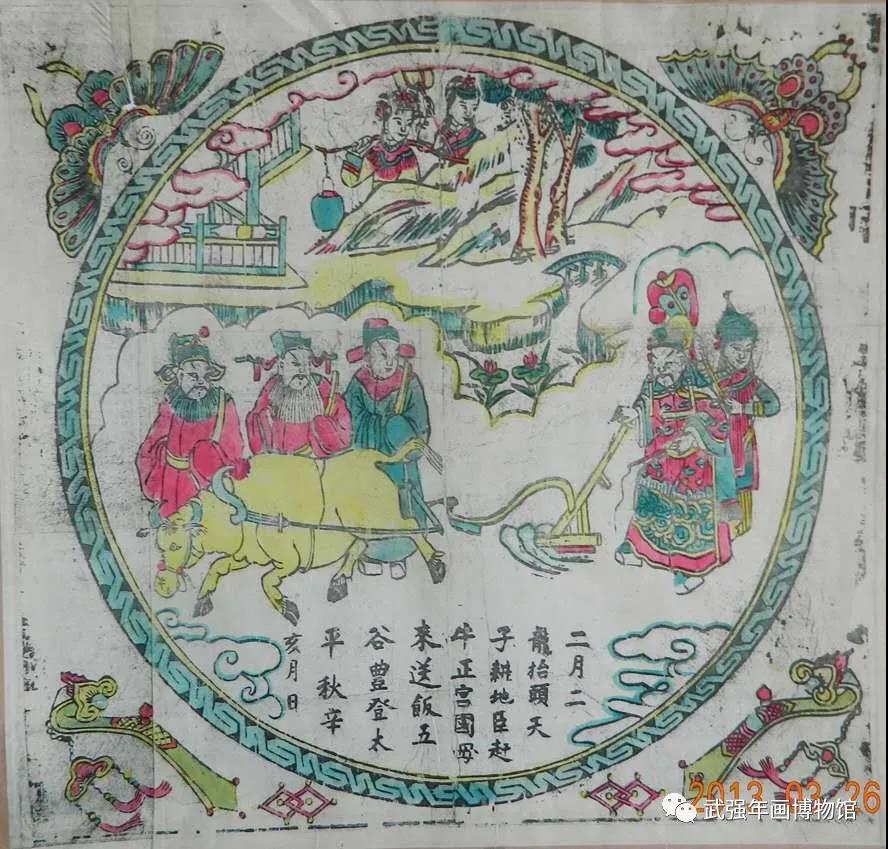 二月二
龍抬頭天
子耕地臣赶
牛正宫國母
來送飯五
谷豊登太
平秋辛
亥月日
2013.03.26
武强年画博物馆